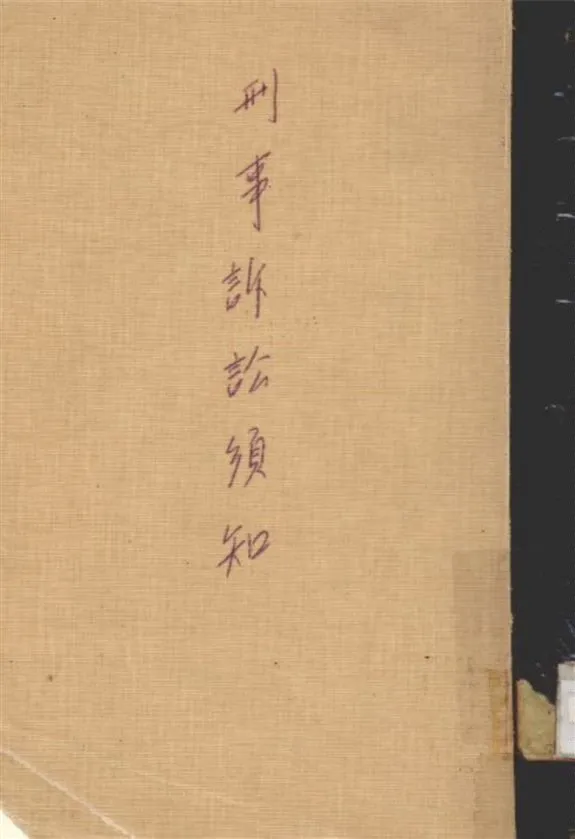 刑事訴訟須知